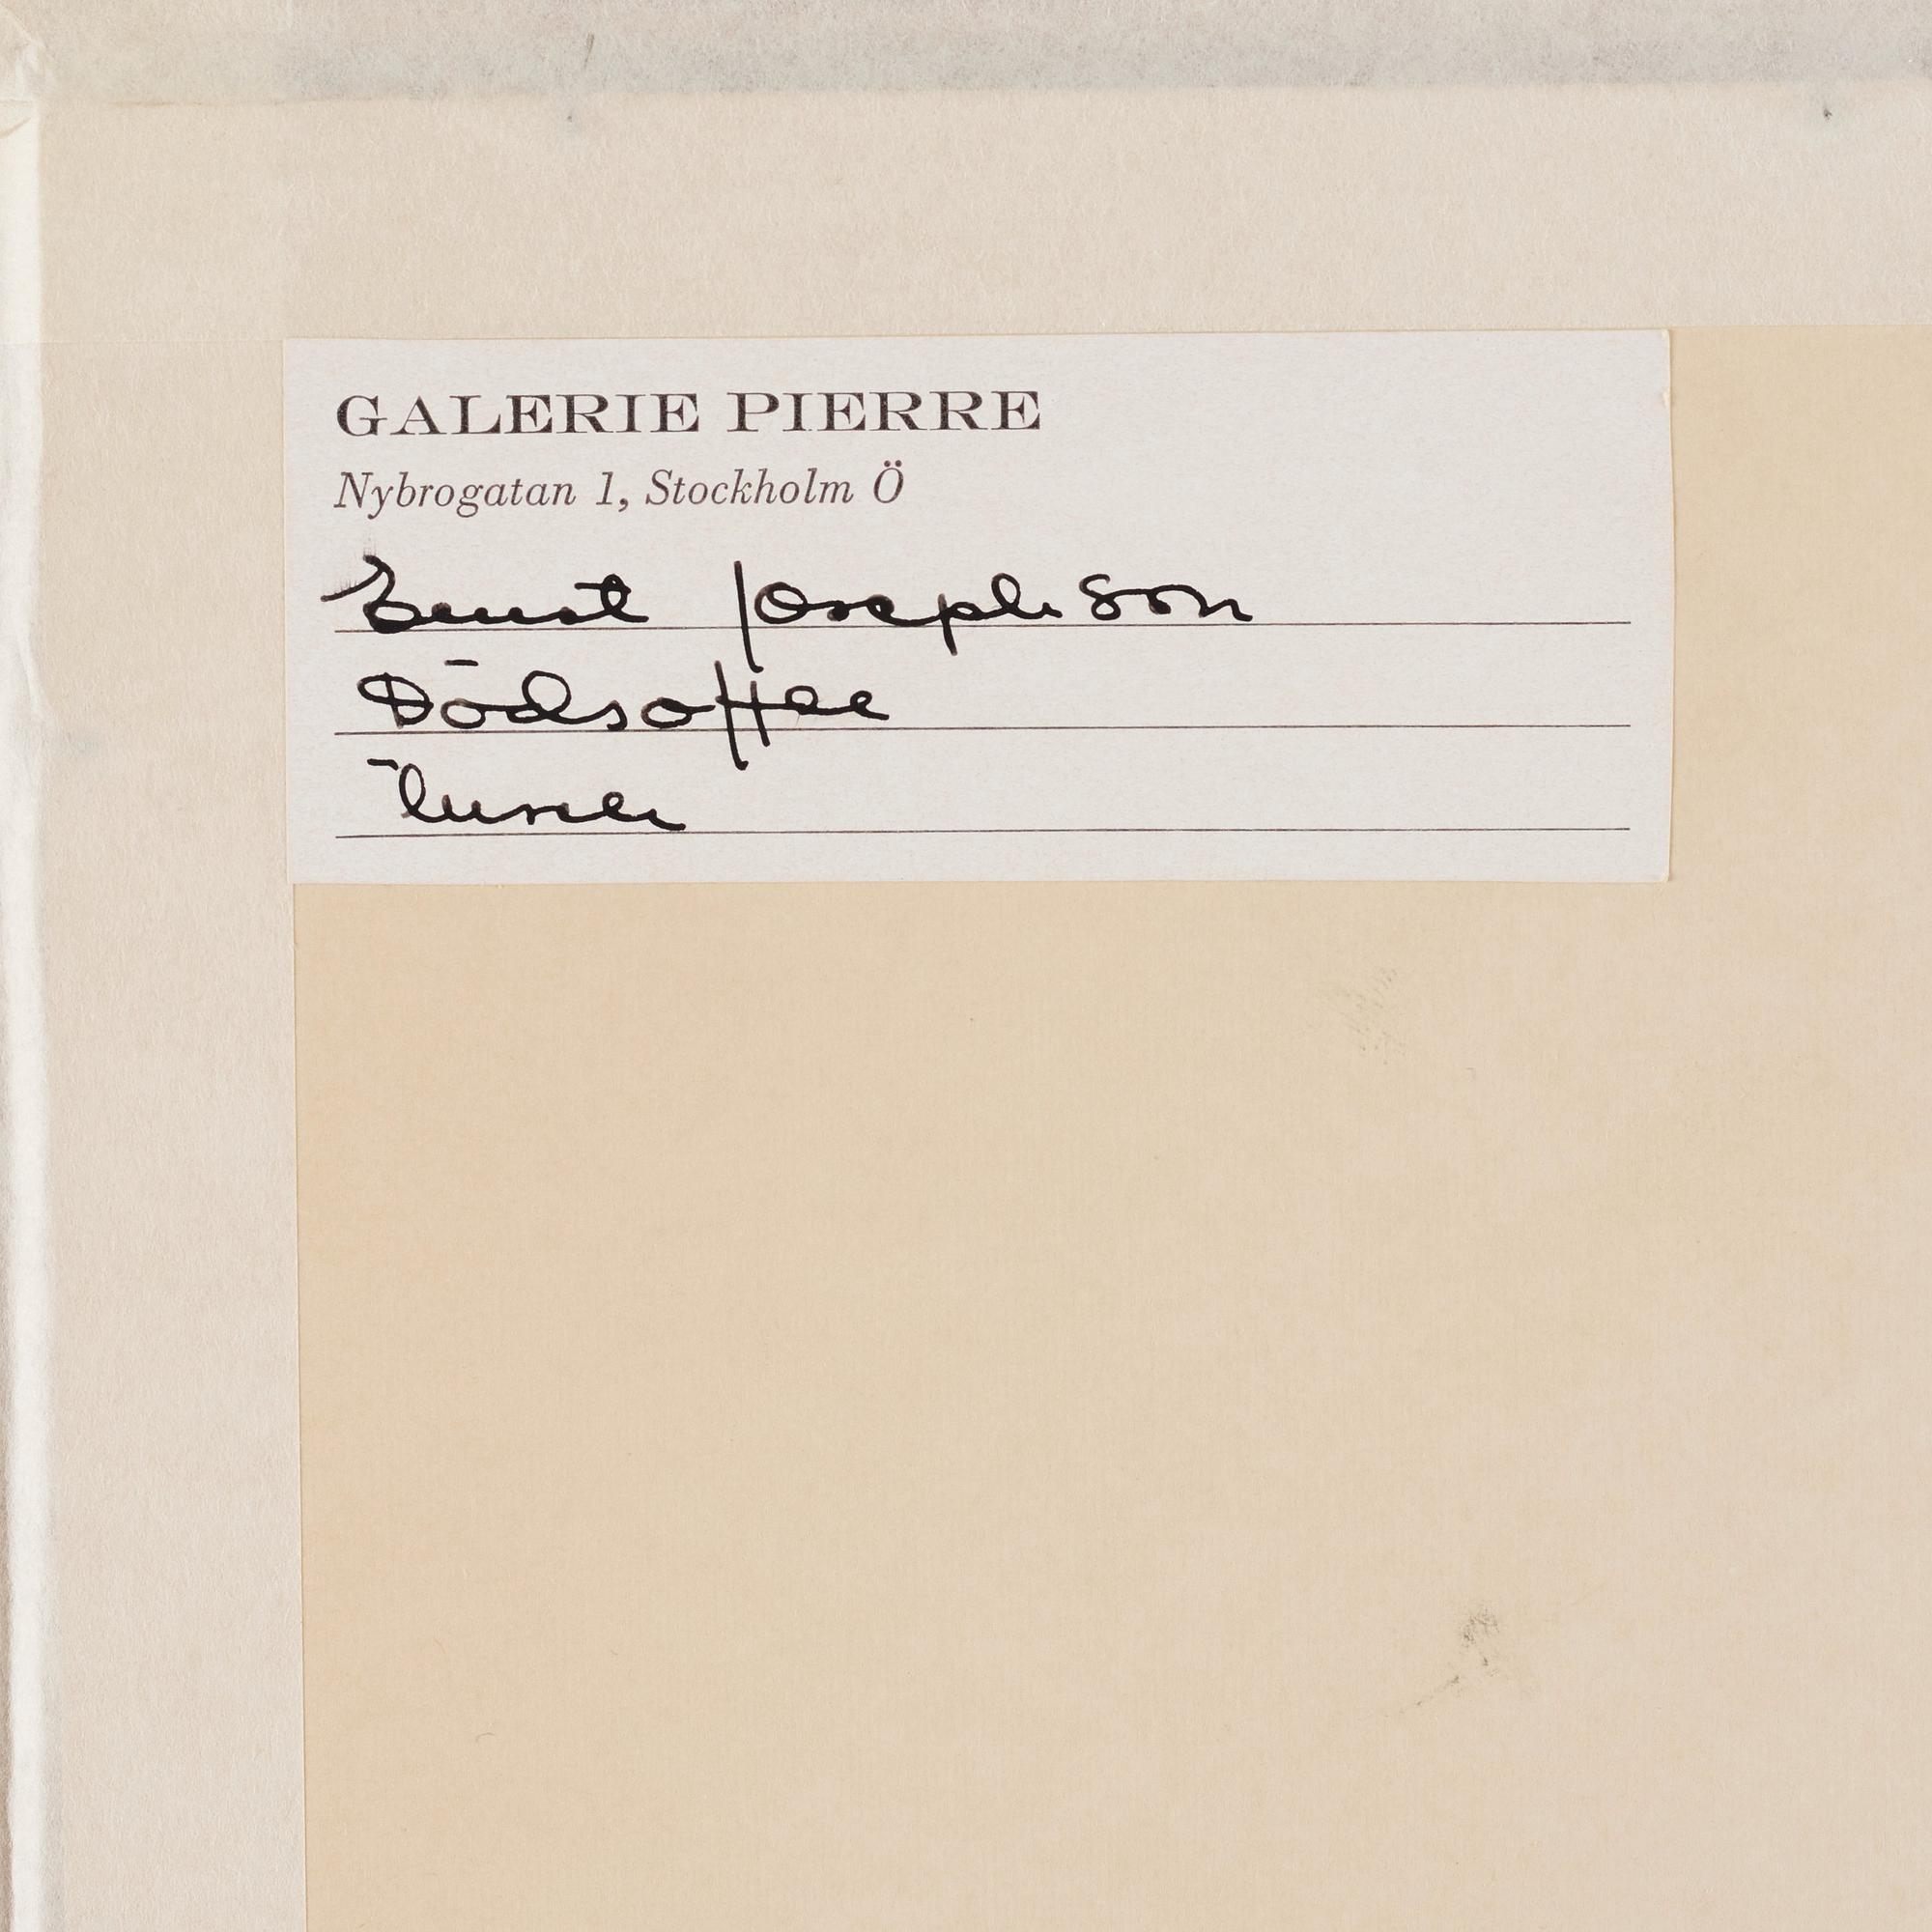 GALERIE PIERRE
Nybrogatan 1, Stockholm Ö
Ernst Josephson
Dödsoffer